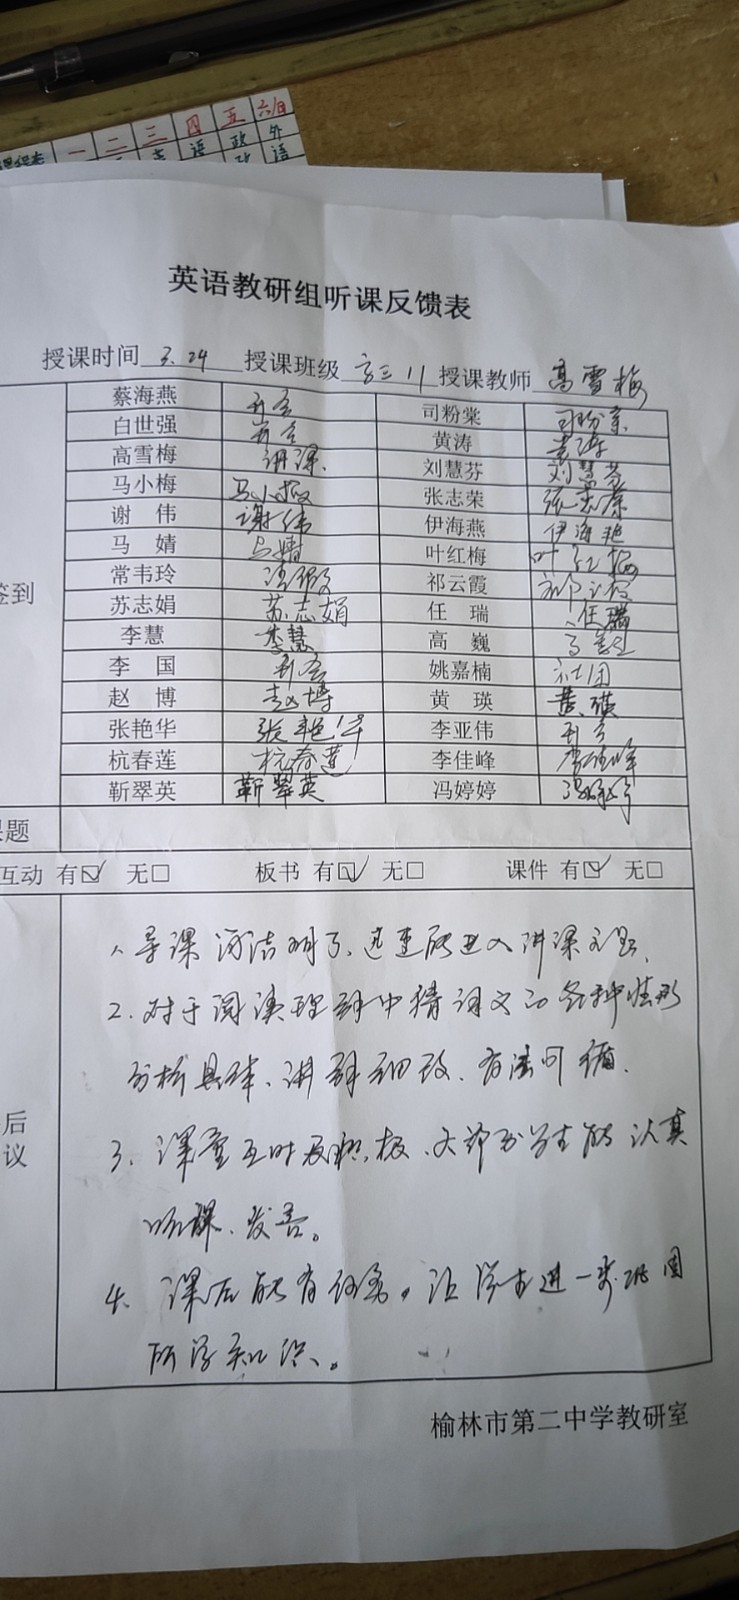 一 二 三 四 五 六/日
课程表
语 政 外
语
英语教研组听课反馈表
授课时间 3.24 授课班级 高三11 授课教师 高雪梅
蔡海燕 开会 司粉棠 司粉棠
白世强 开会 黄涛 黄涛
高雪梅 讲课 刘慧芬 刘慧芬
马小梅 马小梅 张志荣 张志荣
谢 伟 谢伟 伊海燕 伊海燕
马 婧 马婧 叶红梅 叶红梅
常韦玲 祁云霞 祁云霞
签到
苏志娟 苏志娟 任 瑞 任瑞
李慧 李慧 高 巍 高巍
李 国 开会 姚嘉楠 社团
赵 博 赵博 黄 瑛 黄瑛
张艳华 张艳华 李亚伟 开会
杭春莲 杭春莲 李佳峰 李佳峰
靳翠英 靳翠英 冯婷婷 冯婷婷
课题
互动 有☑ 无□ 板书 有☑ 无□ 课件 有☑ 无□
1、导课简洁明了、迅速能进入讲课主题、
2、对于阅读理解中猜词义的各种情形
分析具体、讲解细致、有法可循、
后
议
3、课堂互动及积极、大部分学生能认真
听课、发言。
4、课后能有任务，让学生进一步巩固
所学知识、。
榆林市第二中学教研室